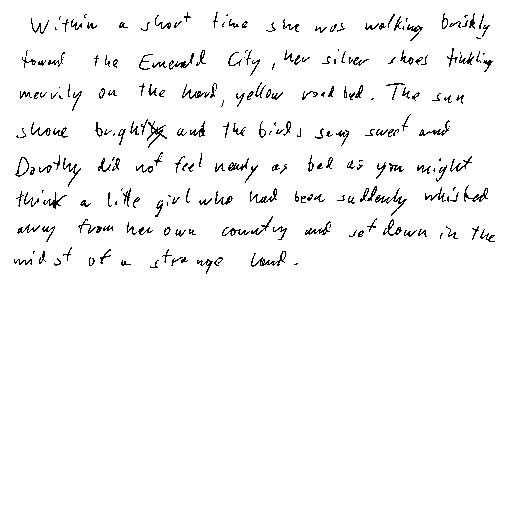 Within a short time she was walking briskly
toward the Emerald City, her silver shoes tinkling
merrily on the hard, yellow road bed. The sun
shone bright and the birds sang sweet and
Dorothy did not feel nearly as bad as you might
think a little girl who had been suddenly whisked
away from her own country and set down in the
midst of a strange land.